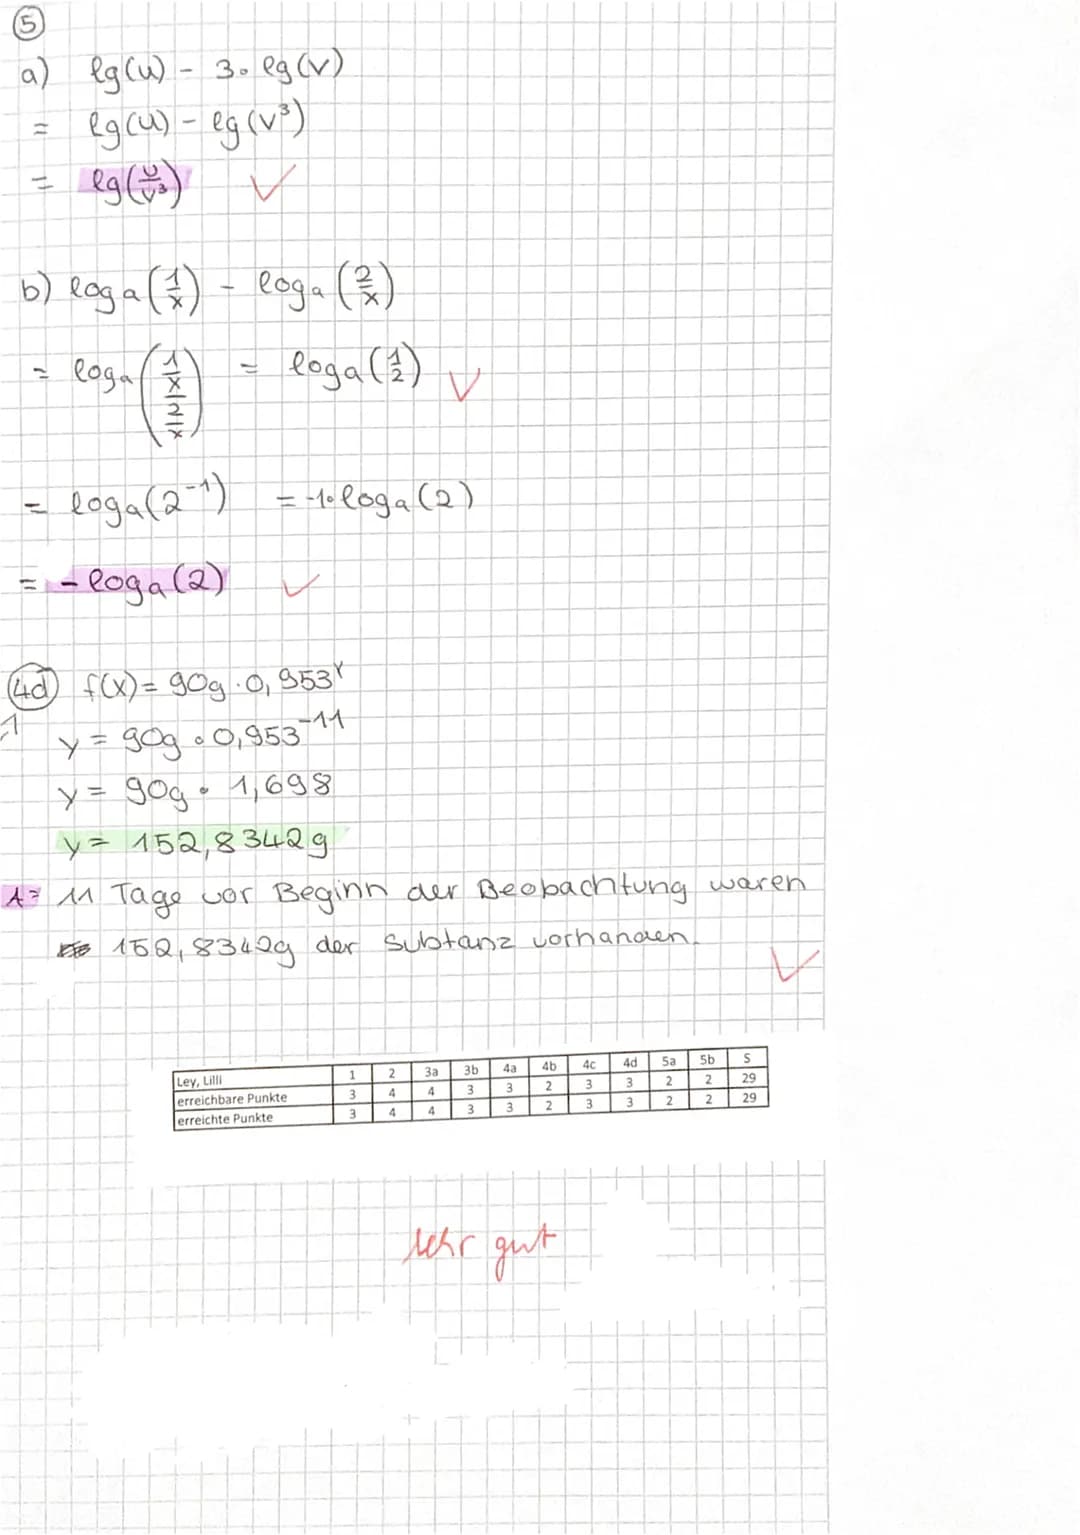 5
a) lg(u) - 3·lg(v)
= lg(u) - lg(v³)
= lg(u/v³) ✓
b) loga(1/x) - loga(2/x)
= loga((1/x)/(2/x)) = loga(1/2) ✓
= loga(2⁻¹) = -1·loga(2)
= -loga(2) ✓
4d) f(x) = 90g · 0,953ˣ
y = 90g · 0,953⁻¹¹
y = 90g · 1,698
y = 152,8342g
A= 11 Tage vor Beginn der Beobachtung waren
152,8342g der Substanz vorhanden. ✓
Ley, Lilli 1 2 3a 3b 4a 4b 4c 4d 5a 5b S
erreichbare Punkte 3 4 4 3 3 2 3 3 2 2 29
erreichte Punkte 3 4 4 3 3 2 3 3 2 2 29
sehr gut